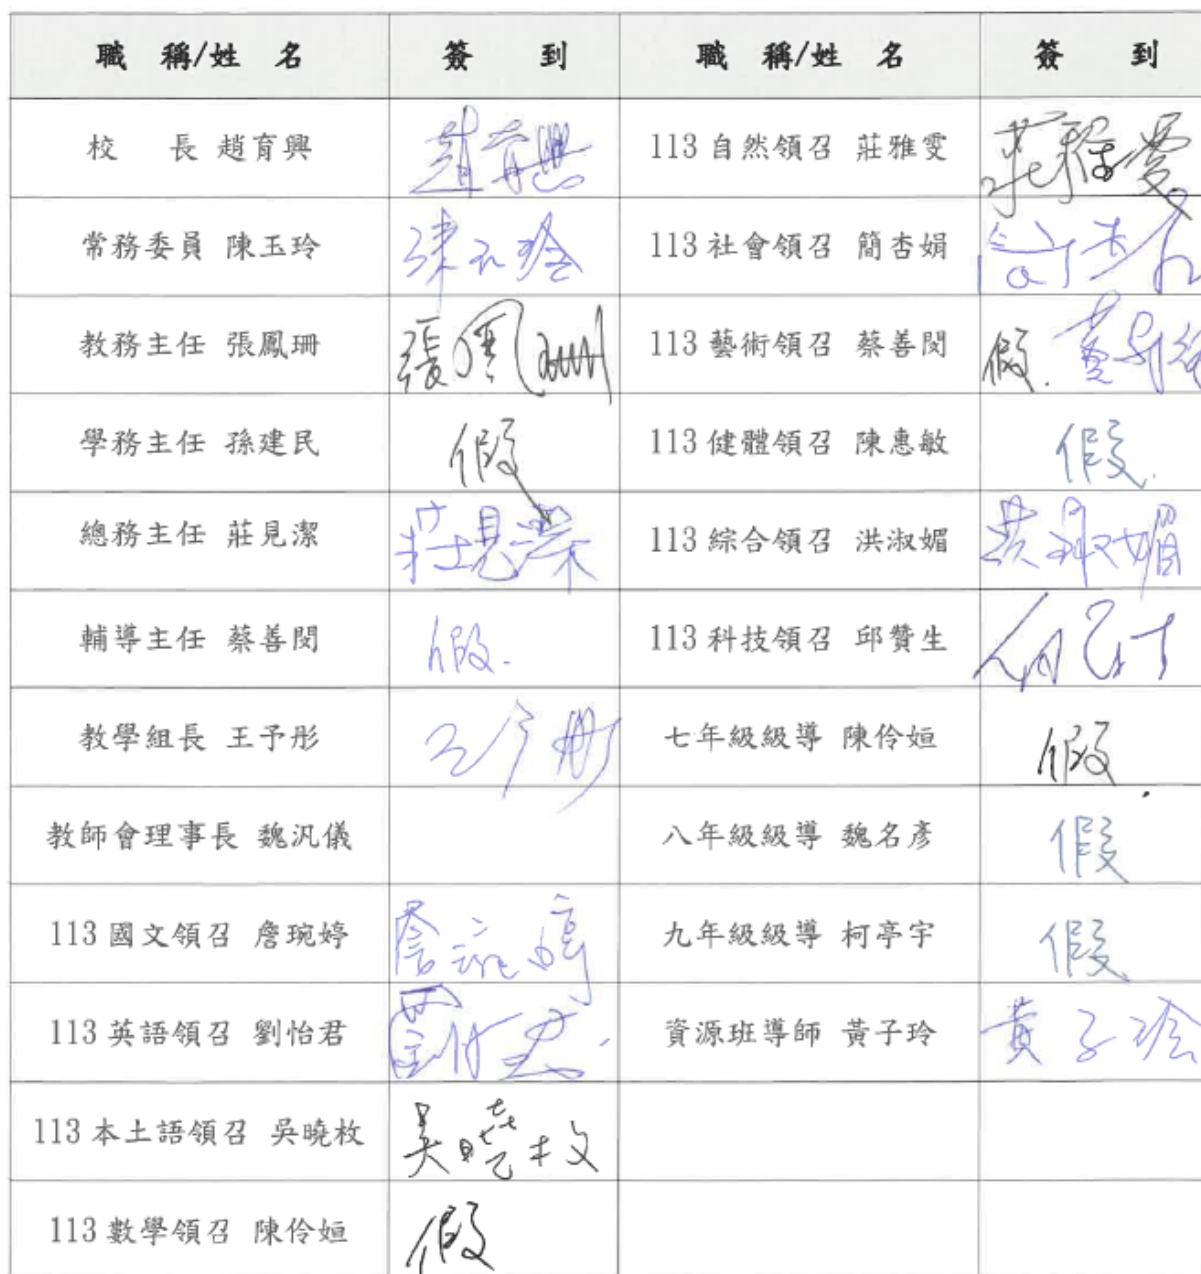 職 稱/姓 名 簽 到 職 稱/姓 名 簽 到
校 長 趙育興 趙育興 113 自然領召 莊雅雯 莊雅雯
常務委員 陳玉玲 陳玉玲 113 社會領召 簡杏娟
教務主任 張鳳珊 張鳳珊 113 藝術領召 蔡善閔 假.
學務主任 孫建民 假 113 健體領召 陳惠敏 假.
總務主任 莊見潔 莊見潔 113 綜合領召 洪淑媚 洪淑媚
輔導主任 蔡善閔 假. 113 科技領召 邱贊生
教學組長 王予彤 王予彤 七年級級導 陳伶姮 假.
教師會理事長 魏汎儀 八年級級導 魏名彥 假
113 國文領召 詹琬婷 詹琬婷 九年級級導 柯亭宇 假
113 英語領召 劉怡君 劉怡君 資源班導師 黃子玲 黃子玲
113 本土語領召 吳曉枚 吳曉枚
113 數學領召 陳伶姮 假